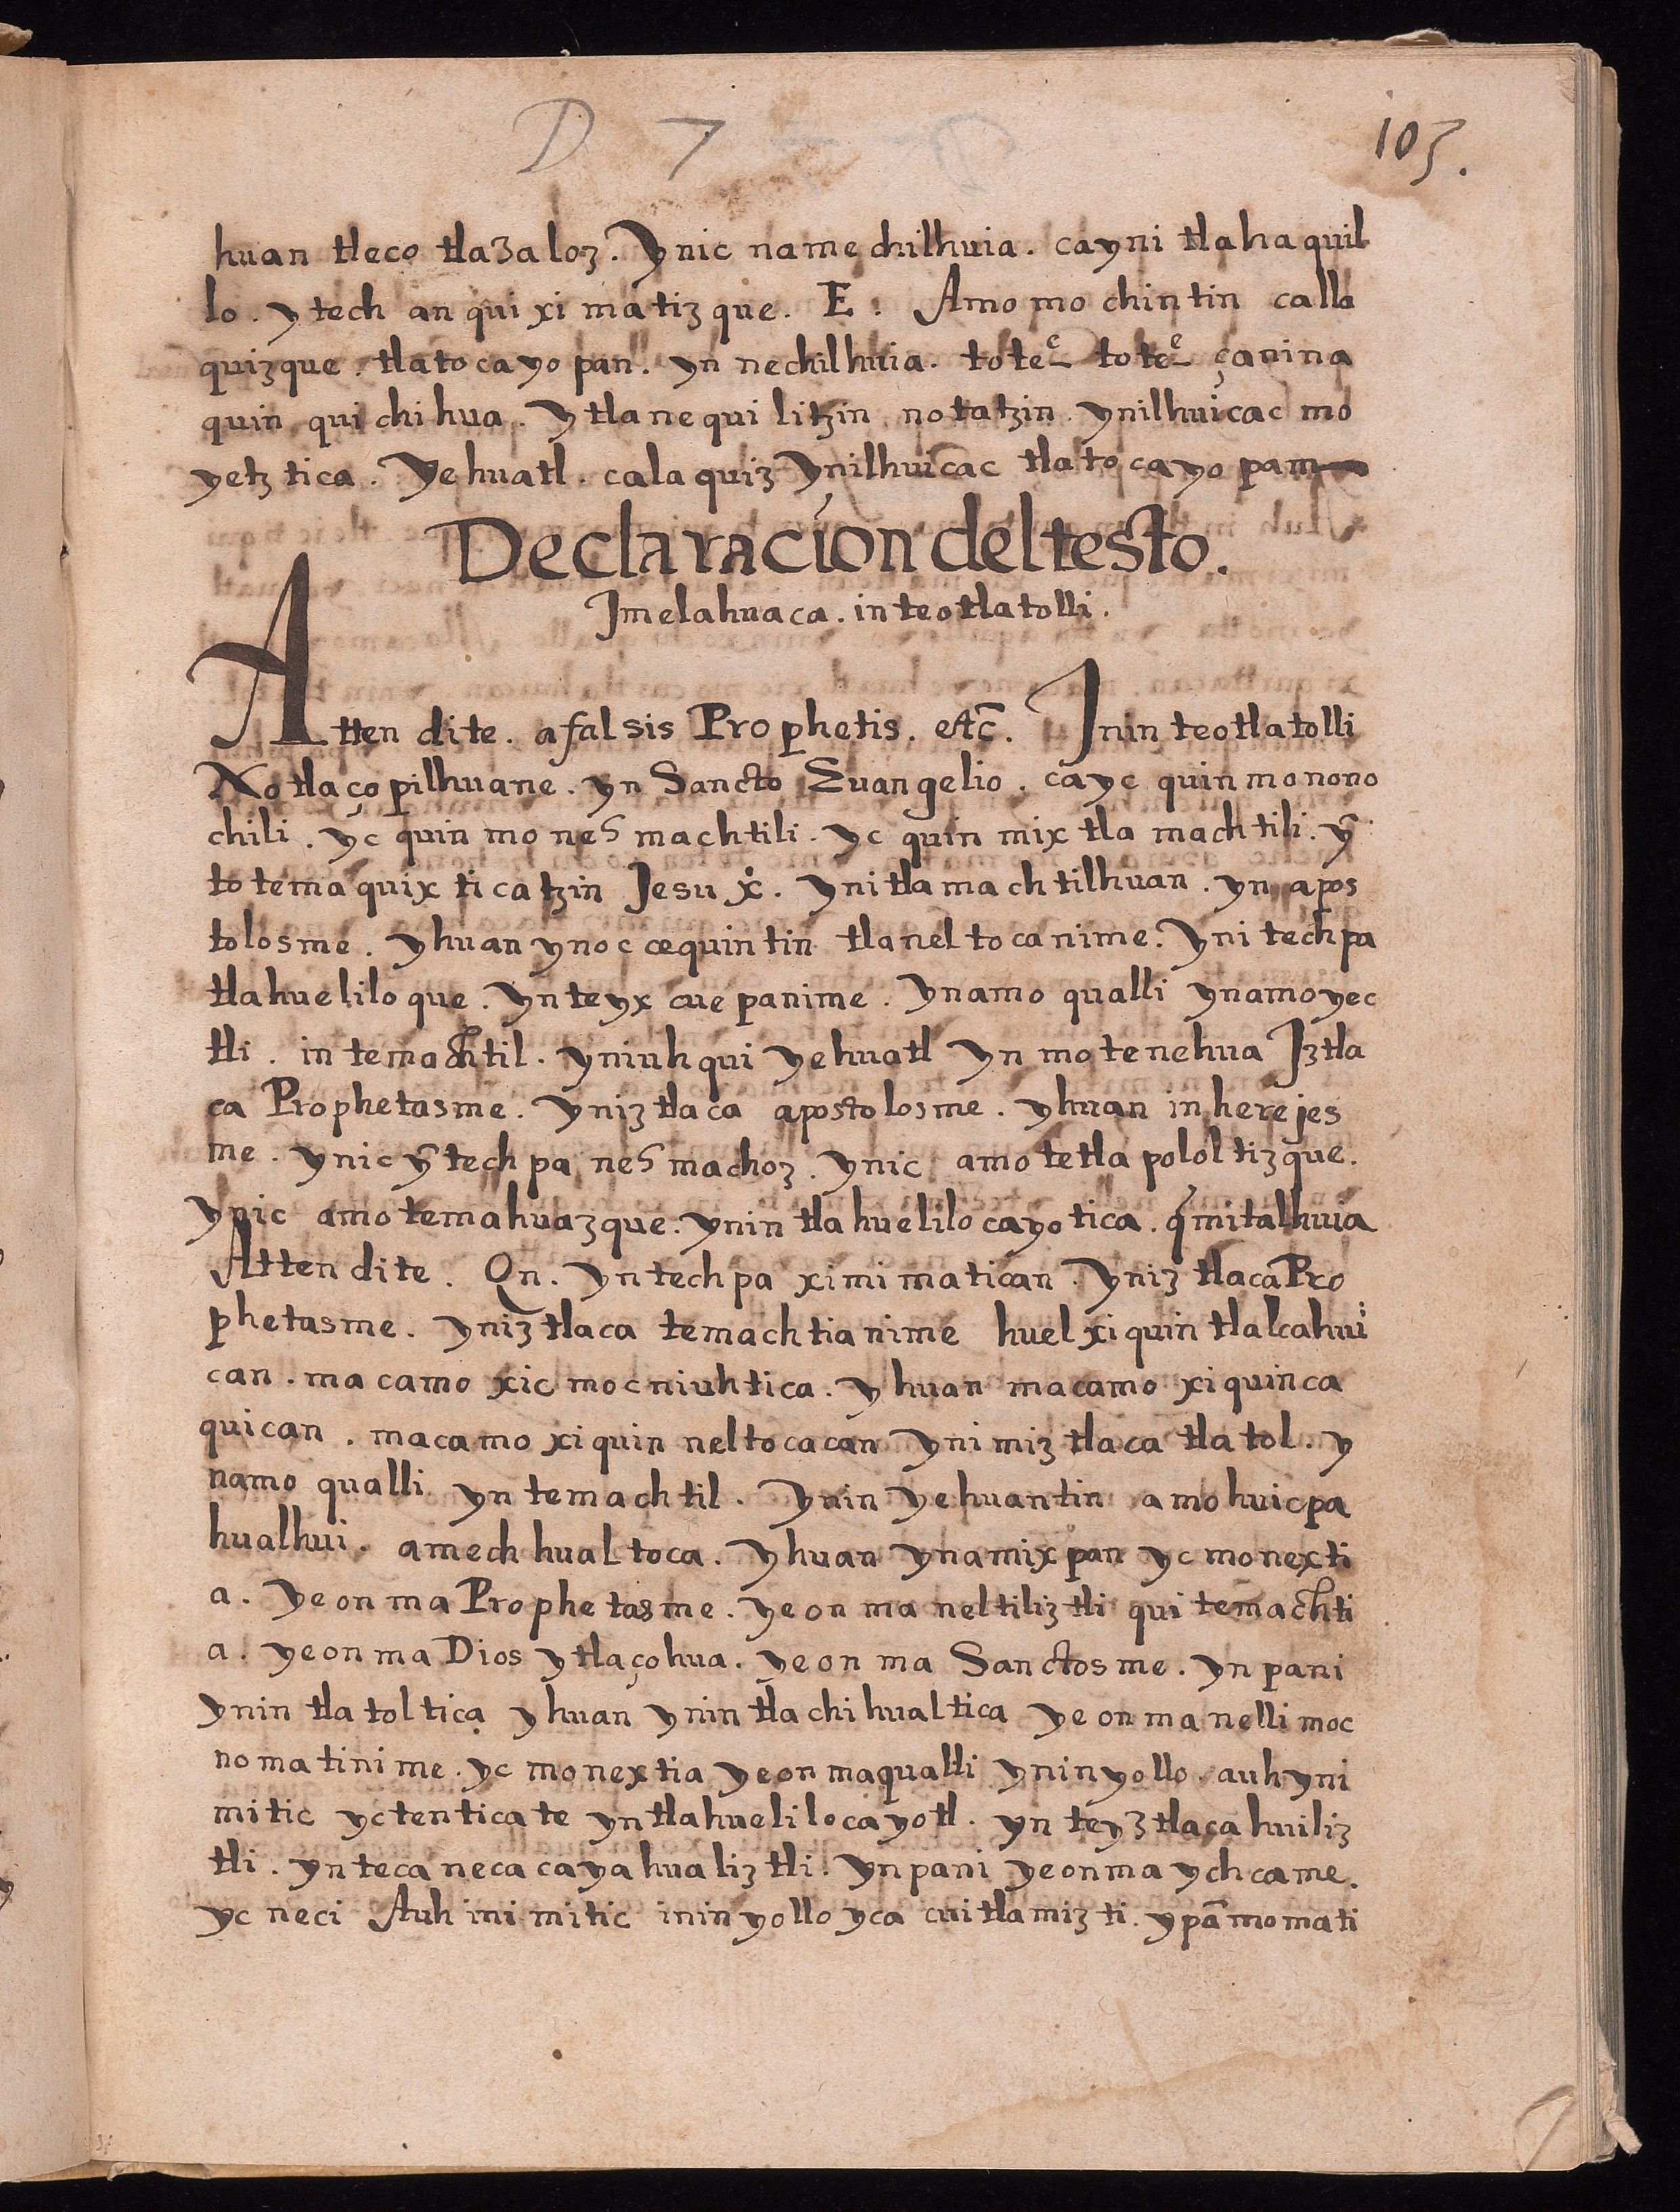 D 7
103.
huan tleco tlaȝaloz. Ynic name chilhuia. cayni tlahaquil
lo. y tech an qui xi matiz que. E. Amo mo chintin calla
quizque. tlatocayo pan. yn nechilhuia. toteᵉ toteᵉ çanina
quin qui chi hua. Y tla ne qui litzin notatzin ynilhuicac mo
yetz tica. Yehuatl. cala quiz Ynilhuicac tlatocayo pam
Declaracion del testo.
Jmelahuaca. in teotlatolli.
Atten dite. afalsis Prophetis. etc̄. Jnin teotlatolli
Notlaço pilhuane. yn Sancto Euangelio. cayc quin monono
chili. yc quin mo nes machtili. yc quin mix tla machtili. ȳ
to tema quix ti catzin Jesu x̊. Ynitlamachtilhuan. yn apos
tolosme. yhuan ynoc cequintin tlanel tocanime. Yni techpa
tlahueliloque. Ynteyx cuepanime. Ynamo qualli ynamoyec
tli. in temachtil. yniuhqui yehuatl Yn motenehua Jztla
ca Prophetasme. Yniztlaca apostolosme. yhuan in herejes
me. ynic ȳ tech pa nes machoz. ynic amo tetla pololtizque.
ynic amo temahuazque. ynin tlahuelilocayotica. q̃mitalhuia
Atten dite. Qn. Yntechpa ximimatican. Yniz tlaca Pro
phetasme. yniztlaca temachtianime huel xiquin tlalcahui
can. macamo xic mocniuhtica. yhuan macamo xiquinca
quican. macamo xiquin neltocacan ynimiztlaca tlatol. y
namo qualli yn temachtil. Ynin yehuantin amohuicpa
hualhui. amech hual toca. Yhuan ynamixpan yc monexti
a. Yeonma Prophetasme. yeon ma neltiliztli qui temachti
a. yeon ma Dios ytlaçohua. yeon ma Sanctosme. yn pani
ynin tlatoltica yhuan ynin tlachihualtica yeon ma nelli moc
nomatinime. yc monextia yeon maqualli yninyollo. auhyni
mitic yctenticate yntlahuelilocayotl. yn teyztlacahuiliz
tli. yn tecanecacayahualiztli. ynpani yeonma ychcame.
yc neci Auh inimitic ininyollo yca cuitlamizti. ypā momati